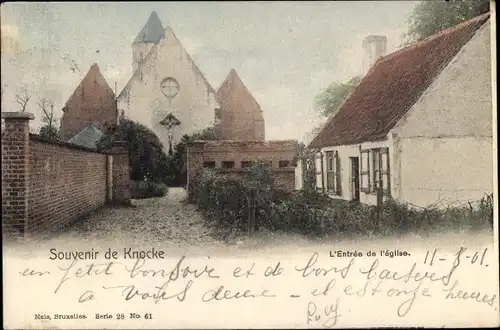 Souvenir de Knocke
L'Entrée de l'église. 11-8-01.
un petit bonsoir et de bons baisers
à vous deux - il est
Nels, Bruxelles. Serie 28 No. 61
Lucy